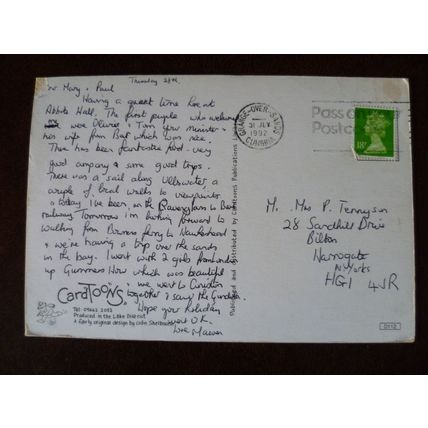 Thursday 28th.
Mary & Paul
Having a great time here at
Abbots Hall. The first people who welcomed
me were Olivier & Tam your minister &
his wife from B which was nice.
There has been fantastic food - very
good company & some good trips.
There was a sail along Ullswater, a
couple of local walks to viewpoints
& today I've been on the
railway. Tomorrow I'm looking forward to
walking from Bowness ferry to Hawkshead
& we're having a trip over the sands
in the bay. I went with 2 girls from
up Gummers How which was beautiful
& we went to
together & saw the Gardens.
Hope your holiday
went O.K.
Love
CardTOONS
Tel:
Produced in the Lake District
A Early original design by Colin Shelbourn
Published and distributed by Cardtoons Publications
GRANGE-OVER-SANDS
31 JLY
1992
CUMBRIA
Pass on
Postcode
18P
M. Mrs P. Tennyson
28 Sandhill Drive
Bilton
Harrogate
N. Yorks
HG1 4JR
D112